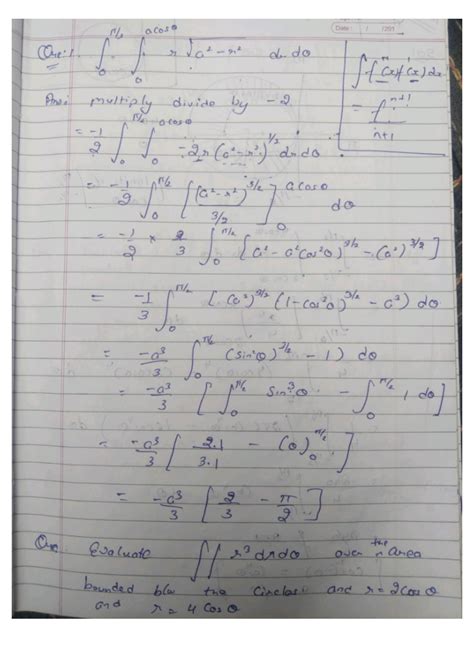 Date: / /201
Que:1 ∫₀^{π/2} ∫₀^{a cosθ} r √(a²-r²) dr dθ
∫ fⁿ(x) f'(x) dx
= f^{n+1} / n+1
Ans: multiply divide by -2
= -1/2 ∫₀^{π/2} ∫₀^{a cosθ} -2r (a²-r²)^{1/2} dr dθ
= -1/2 ∫₀^{π/2} [ (a²-r²)^{3/2} / 3/2 ]₀^{a cosθ} dθ
= -1/2 × 2/3 ∫₀^{π/2} [ (a²-a²cos²θ)^{3/2} - (a²)^{3/2} ]
= -1/3 ∫₀^{π/2} [ (a²)^{3/2} (1-cos²θ)^{3/2} - a³) dθ
= -a³/3 ∫₀^{π/2} (sin²θ)^{3/2} - 1) dθ
= -a³/3 [ ∫₀^{π/2} sin³θ - ∫₀^{π/2} 1 dθ ]
= -a³/3 [ 2.1/3.1 - (θ)₀^{π/2} ]
= -a³/3 [ 2/3 - π/2 ]
Que Evaluate ∫∫ r³ dr dθ over the area
bounded b/w the circles and r = 2cosθ
and r = 4 cosθ